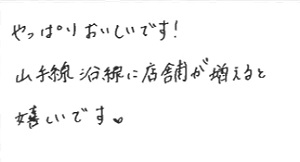 やっぱりおいしいです!
山手線沿線に店舗が増えると
嬉しいです。